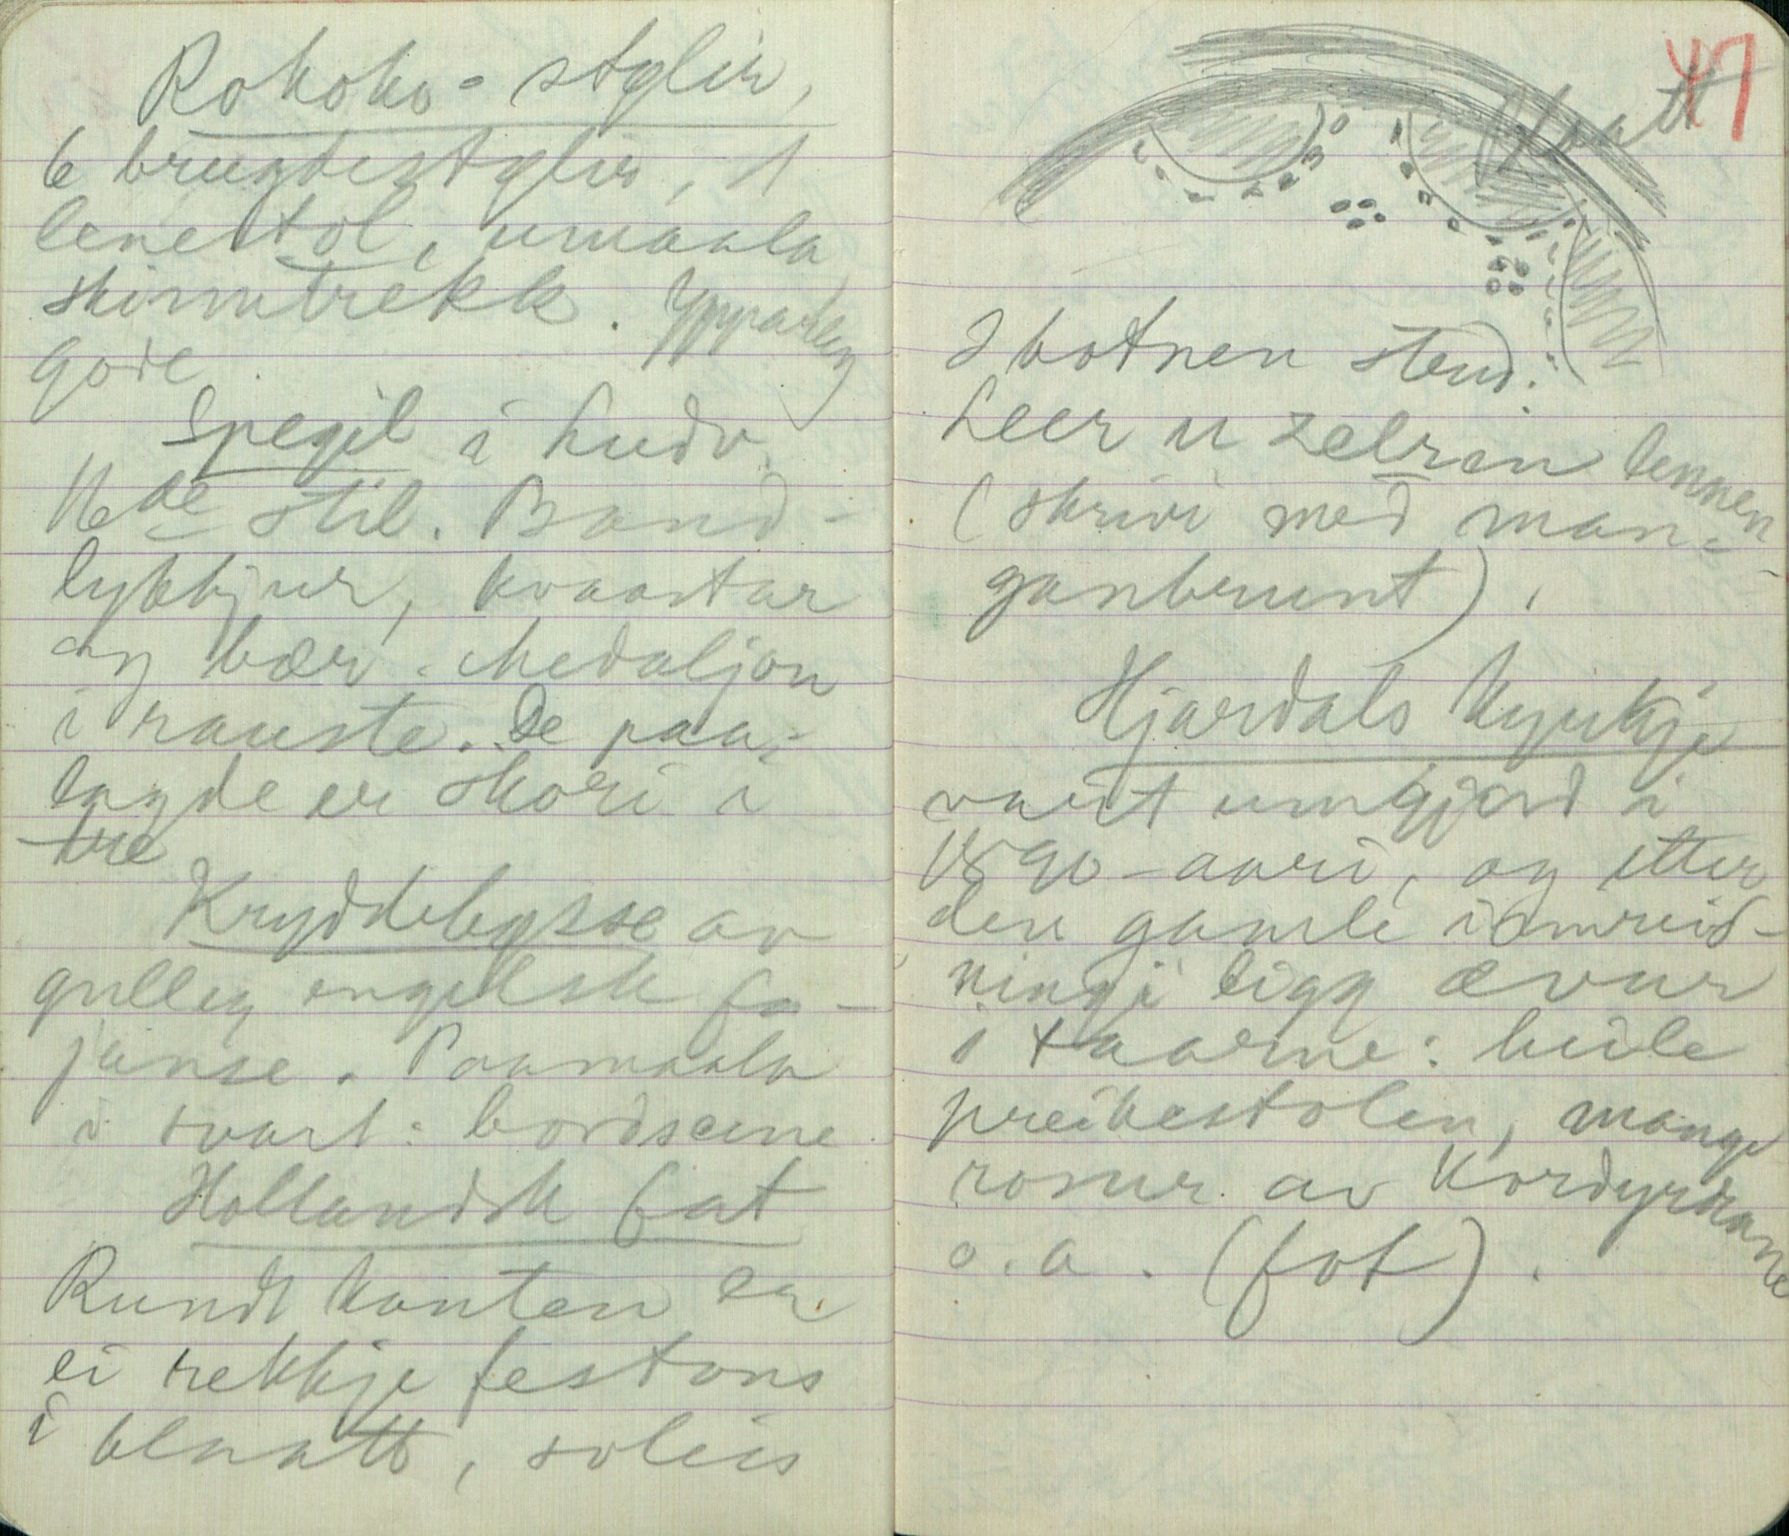 Rokoko-stylir,
6 brugdestylir, 1
lenestol, umaala
skinntrekk. Ypparleg
gode.
Spegil i Ludv.
16de stil. Band-
lykkjur, kvaastar
og bær. Medaljon
i rauste. De paa-
lagde er skori i
tre
Kryddebysse av
gulleg engelsk fa-
janse. Paamaala
i svart: bordscene
Hollandsk fat
Rundt kanten er
ei rekkje festons
i blaatt, soleis
47
blaatt
I botnen stend:
Leer u zelven kennen
(skrivi med man-
ganbrunt).
Hjardals kyrkje
vart umgjord i
1890-aari, og etter
den gamle innreid-
ningi ligg ævur
i taarne: heile
preikestolen, mange
rosur av
o.a. (fot).